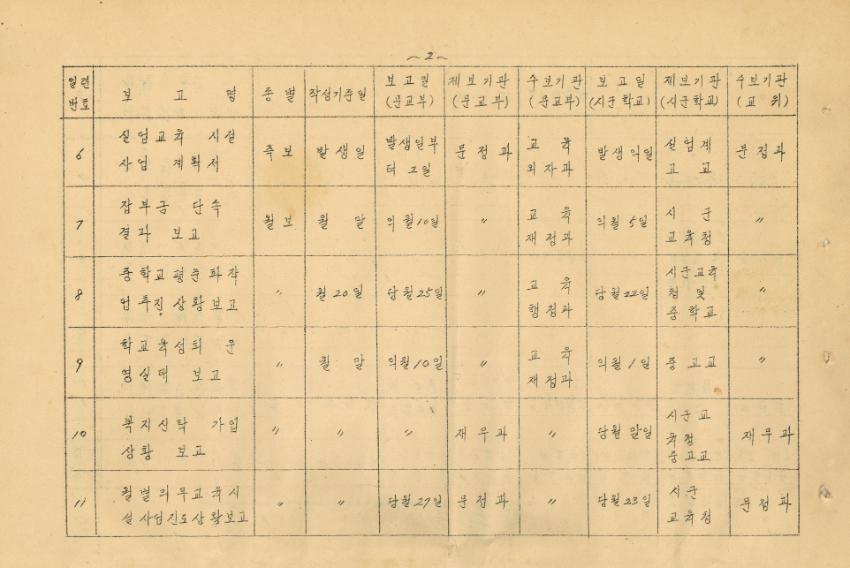 -2-
일련번호 보고명 종별 작성기준일 보고일(문교부) 제보기관(문교부) 수보기관(문교부) 보고일(시군학교) 제보기관(시군학교) 수보기관(교위)
6 실업교육 시설 사업 계획서 즉보 발생일 발생일부터 2일 문정과 교육 외자과 발생익일 실업계 고교 문정과
7 잡부금 단속 결과 보고 월보 월말 익월10일 〃 교육 재정과 익월5일 시군 교육청 〃
8 중학교평준화작업추진상황보고 〃 월20일 당월25일 〃 교육 행정과 당월22일 시군교육청 및 중학교 〃
9 학교육성회 운영실태 보고 〃 월말 익월10일 〃 교육 재정과 익월1일 중고교 〃
10 복지신탁 가입 상황 보고 〃 〃 〃 재무과 〃 당월말일 시군교육청 중고교 재무과
11 월별의무교육시설사업진도상황보고 〃 〃 당월27일 문정과 〃 당월23일 시군 교육청 문정과